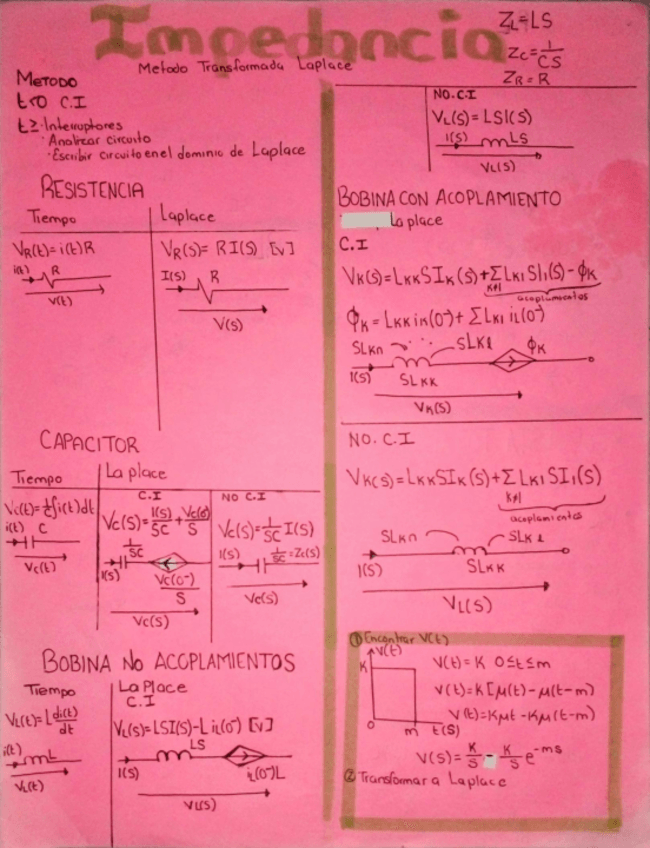 Impedancia
Metodo Transformada Laplace
Z_L=LS
Z_C=1/CS
Z_R=R
METODO
t<0 C.I
t≥·Interruptores
·Analizar circuito
·Escribir circuito en el dominio de Laplace
RESISTENCIA
Tiempo
V_R(t)=i(t)R
i(t) R
V(t)
Laplace
V_R(S)= RI(S) [V]
I(S) R
V(S)
CAPACITOR
Tiempo
V_c(t)=1/C∫i(t)dt
i(t) C
V_c(t)
Laplace
C.I
V_c(S)=I(S)/SC+V_c(0)/S
1/SC
I(S)
V_c(0⁻)/S
V_c(S)
NO C.I
V_c(S)=1/SC I(S)
I(S) 1/SC=Z_c(S)
V_c(S)
BOBINA NO ACOPLAMIENTOS
Tiempo
V_L(t)=L di(t)/dt
i(t) L
V_L(t)
LaPlace
C.I
V_L(S)=LSI(S)-L i_L(0⁻) [V]
LS
I(S) i_L(0⁻)L
V_L(S)
NO.C.I
V_L(S)=LSI(S)
I(S) LS
V_L(S)
BOBINA CON ACOPLAMIENTO
Laplace
C.I
V_K(S)=L_KK S I_K(S)+ΣL_K1 SI_1(S)-ϕ_K
K≠1
acoplamientos
ϕ_K=L_KK i_K(0⁻)+ΣL_K1 i_L(0⁻)
SL_Kn SL_Kl ϕ_K
I(S) SL_KK
V_K(S)
NO.C.I
V_K(S)=L_KK S I_K(S)+ΣL_K1 SI_1(S)
K≠1
acoplamientos
SL_Kn SL_Kl
I(S) SL_KK
V_L(S)
① Encontrar V(t)
V(t)
K
0 m t(S)
V(t)=K 0≤t≤m
V(t)=K[μ(t)-μ(t-m)
V(t)=Kμt-Kμ(t-m)
V(S)=K/S-K/S e^-ms
② Transformar a Laplace